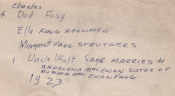 Charles
+ Dad Fagg
Ella Fagg Hockmen
Margaret Fagg Struthers
Uncle Walt Gage married to
Charlena MacEwan sister of
and Ewan Fagg
1923